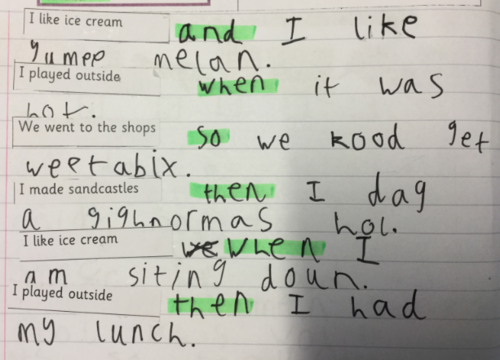 I like ice cream and I like
yumee melan.
I played outside when it was
hot.
We went to the shops so we kood get
weetabix.
I made sandcastles then I dag
a gighnormas hol.
I like ice cream when I
am siting doun.
I played outside then I had
my lunch.